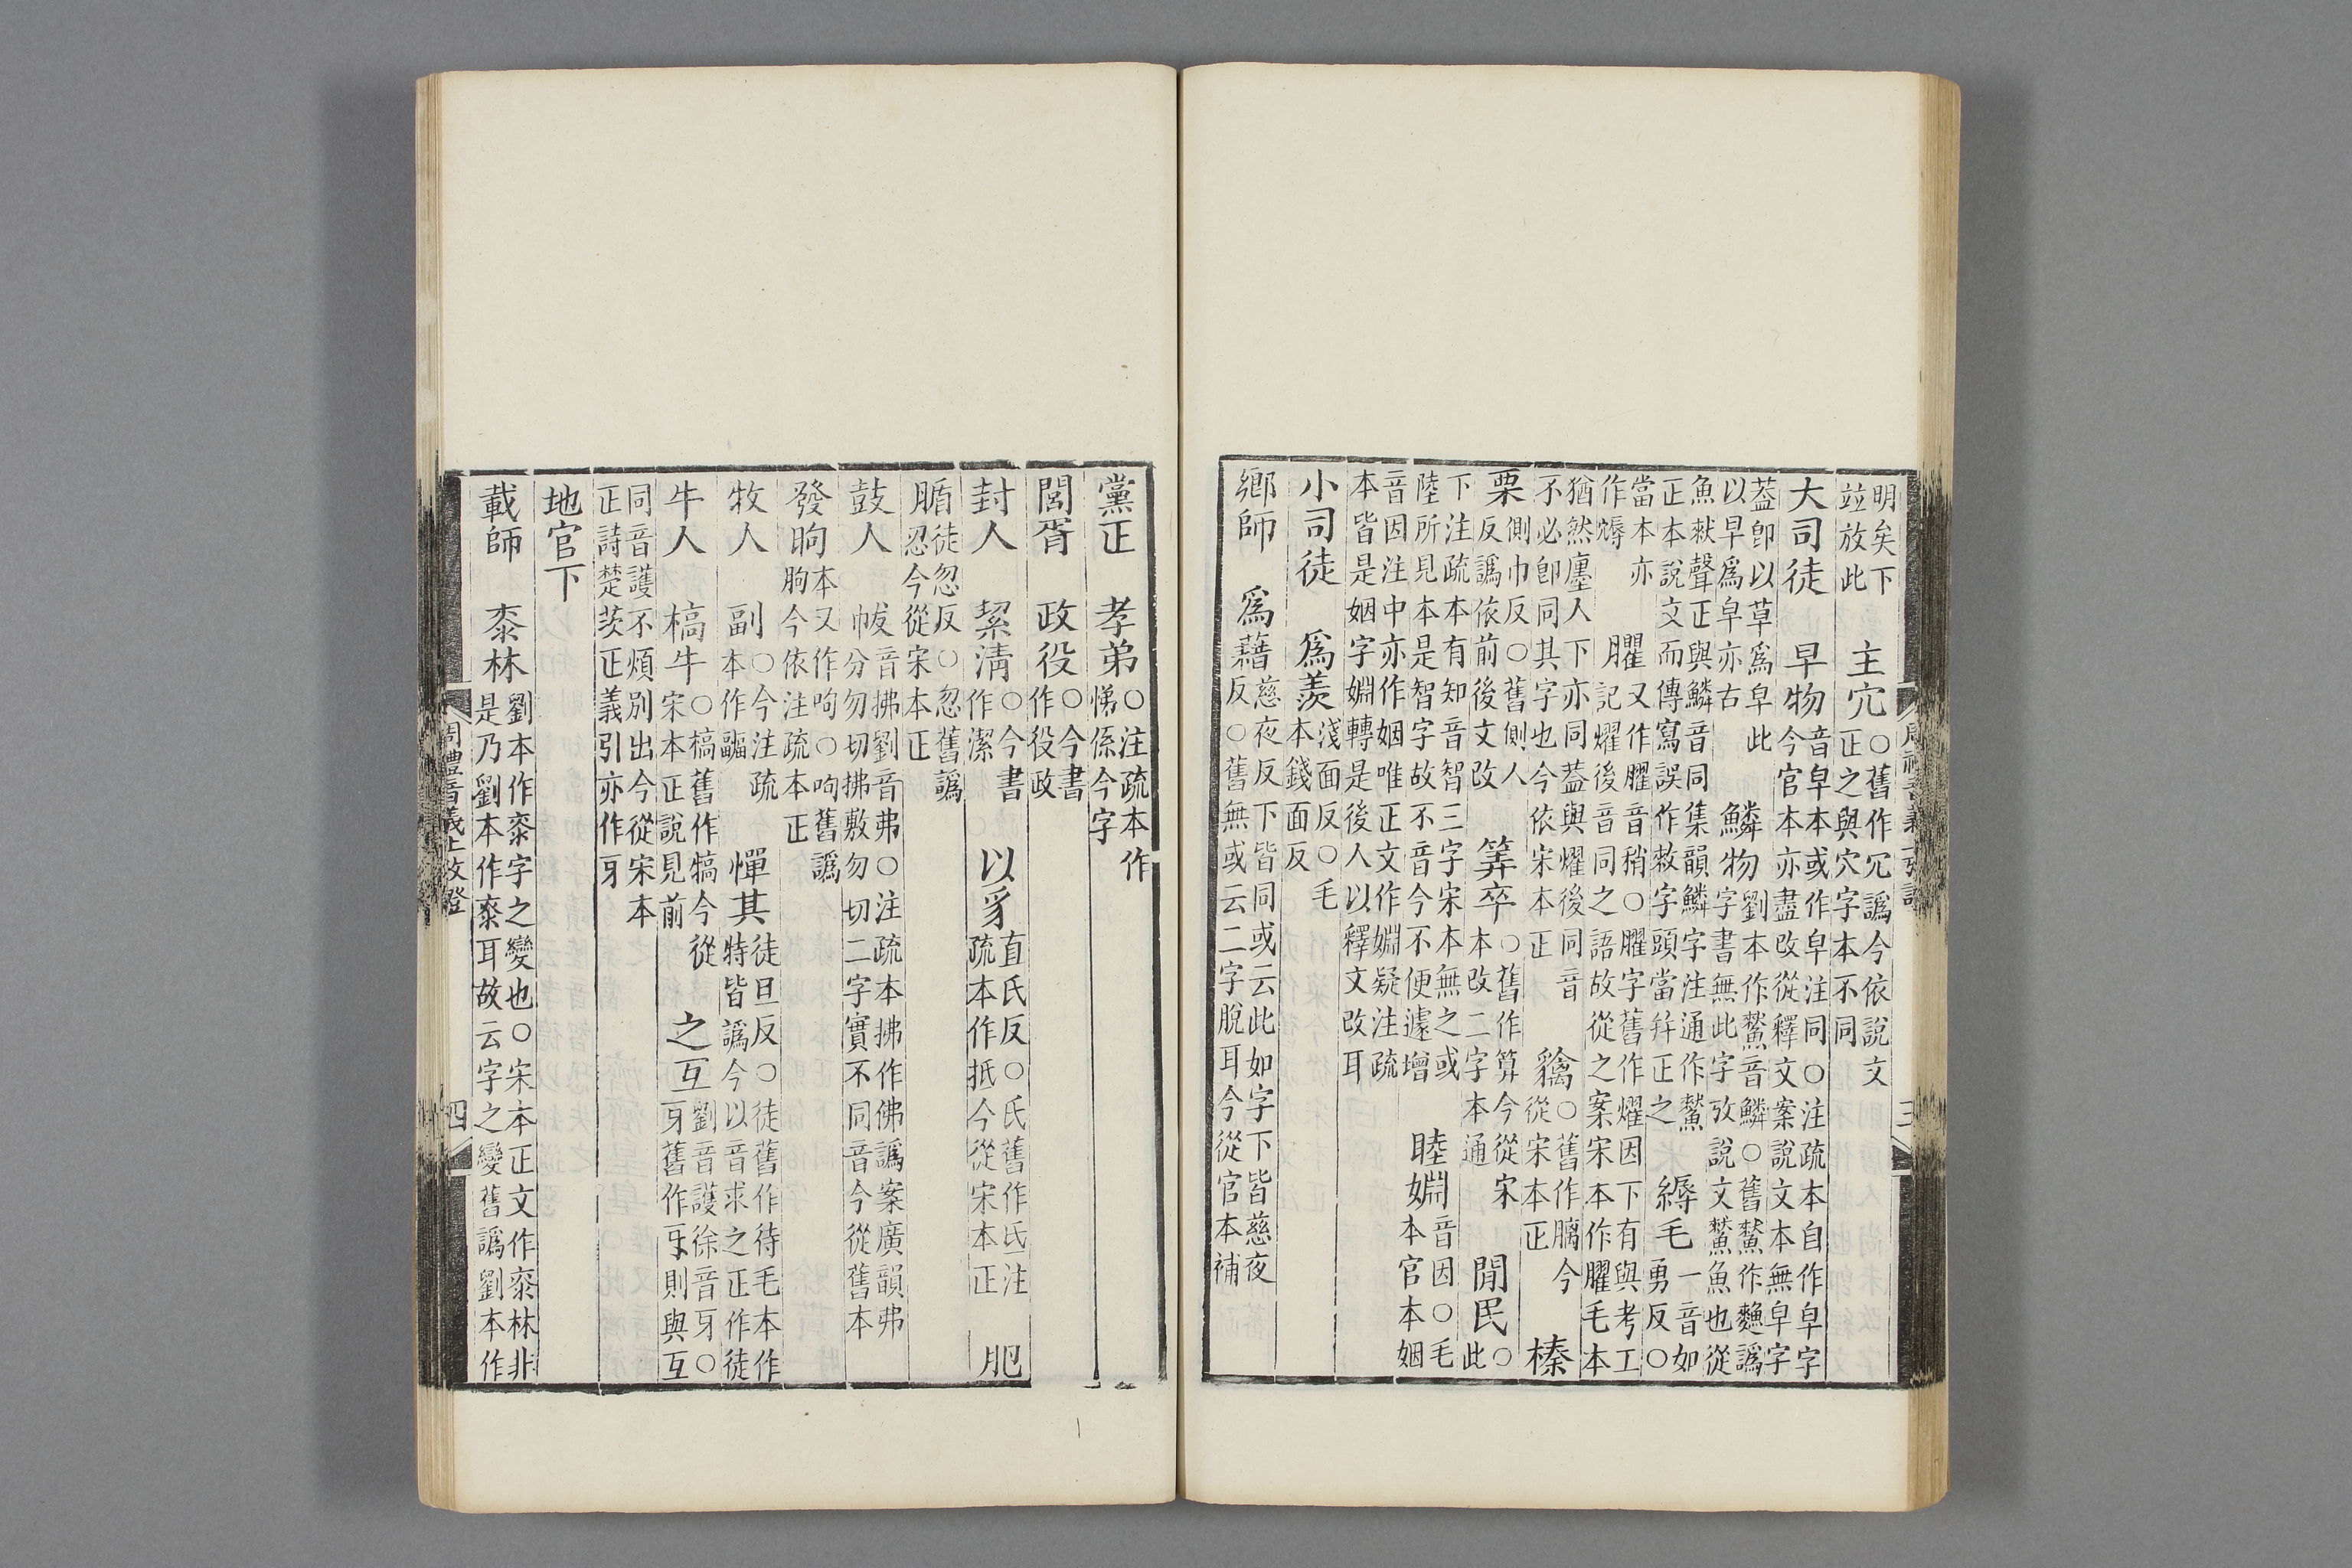 明矣下竝放此 主宂○舊作冗譌今依說文正之與穴字本不同
大司徒 早物音皁本或作皁注同○注疏本自作皁字今官本亦盡改從釋文案說文本無皁字
葢卽以草爲皁此以早爲皁亦古 鱗物劉本作音鱗○舊作譌字書無此字攷說文魚也從
魚聲正與鱗音同集韻鱗字注通作正本說文而傳寫誤作敖字頭當幷正之 縟毛一音如勇反○
當本亦作 臞又作臞音稍○臞字舊作燿因下有與考工記燿後音同之語故從之案宋本作臞毛本
猶然廛人下亦同葢與燿後同音不必卽同其字也今依宋本正 ○舊作今從宋本正 榛
栗側巾反○舊側人反譌依前後文改 筭卒○舊作算今從宋本改二字本通 閒民○此
下注疏本有知音智三字宋本無之或陸所見本是智字故不音今不便遽增 睦婣音因○毛本官本姻
音因注中亦作姻唯正文作婣疑注疏本皆是姻字婣轉是後人以釋文改耳
小司徒 爲羨淺面反○毛本錢面反
鄉師 爲藉慈夜反下皆同或云此如字下皆慈夜反○舊無或云二字脫耳今從官本補
黨正 孝弟○注疏本作悌係今字
閭胥 政役○今書作役政
封人 絜清○今書作潔 以豸直氏反○氏舊作氐注疏本作抵今從宋本正 肥
腯徒忽反○忽舊譌忍今從宋本正
鼓人 帗音拂劉音弗○注疏本拂作佛譌案廣韻弗巾分勿切拂敷勿切二字實不同音今從舊本
發昫本又作呴○呴舊譌朐今依注疏本正
牧人 副○今注疏本作疈 憚其徒旦反○徒舊作待毛本作特皆譌今以音求之正作徒
牛人 槁牛○槁舊作犒今從宋本正說見前 之互劉音護徐音牙○㸦舊作牙則與互
同音護不煩別出今從宋本正詩楚茨正義引亦作㸦
地官下
載師 桼林劉本作字之變也○宋本正文作林非是乃劉本作耳故云字之變舊譌劉本作
周禮音義上攷證
三
四